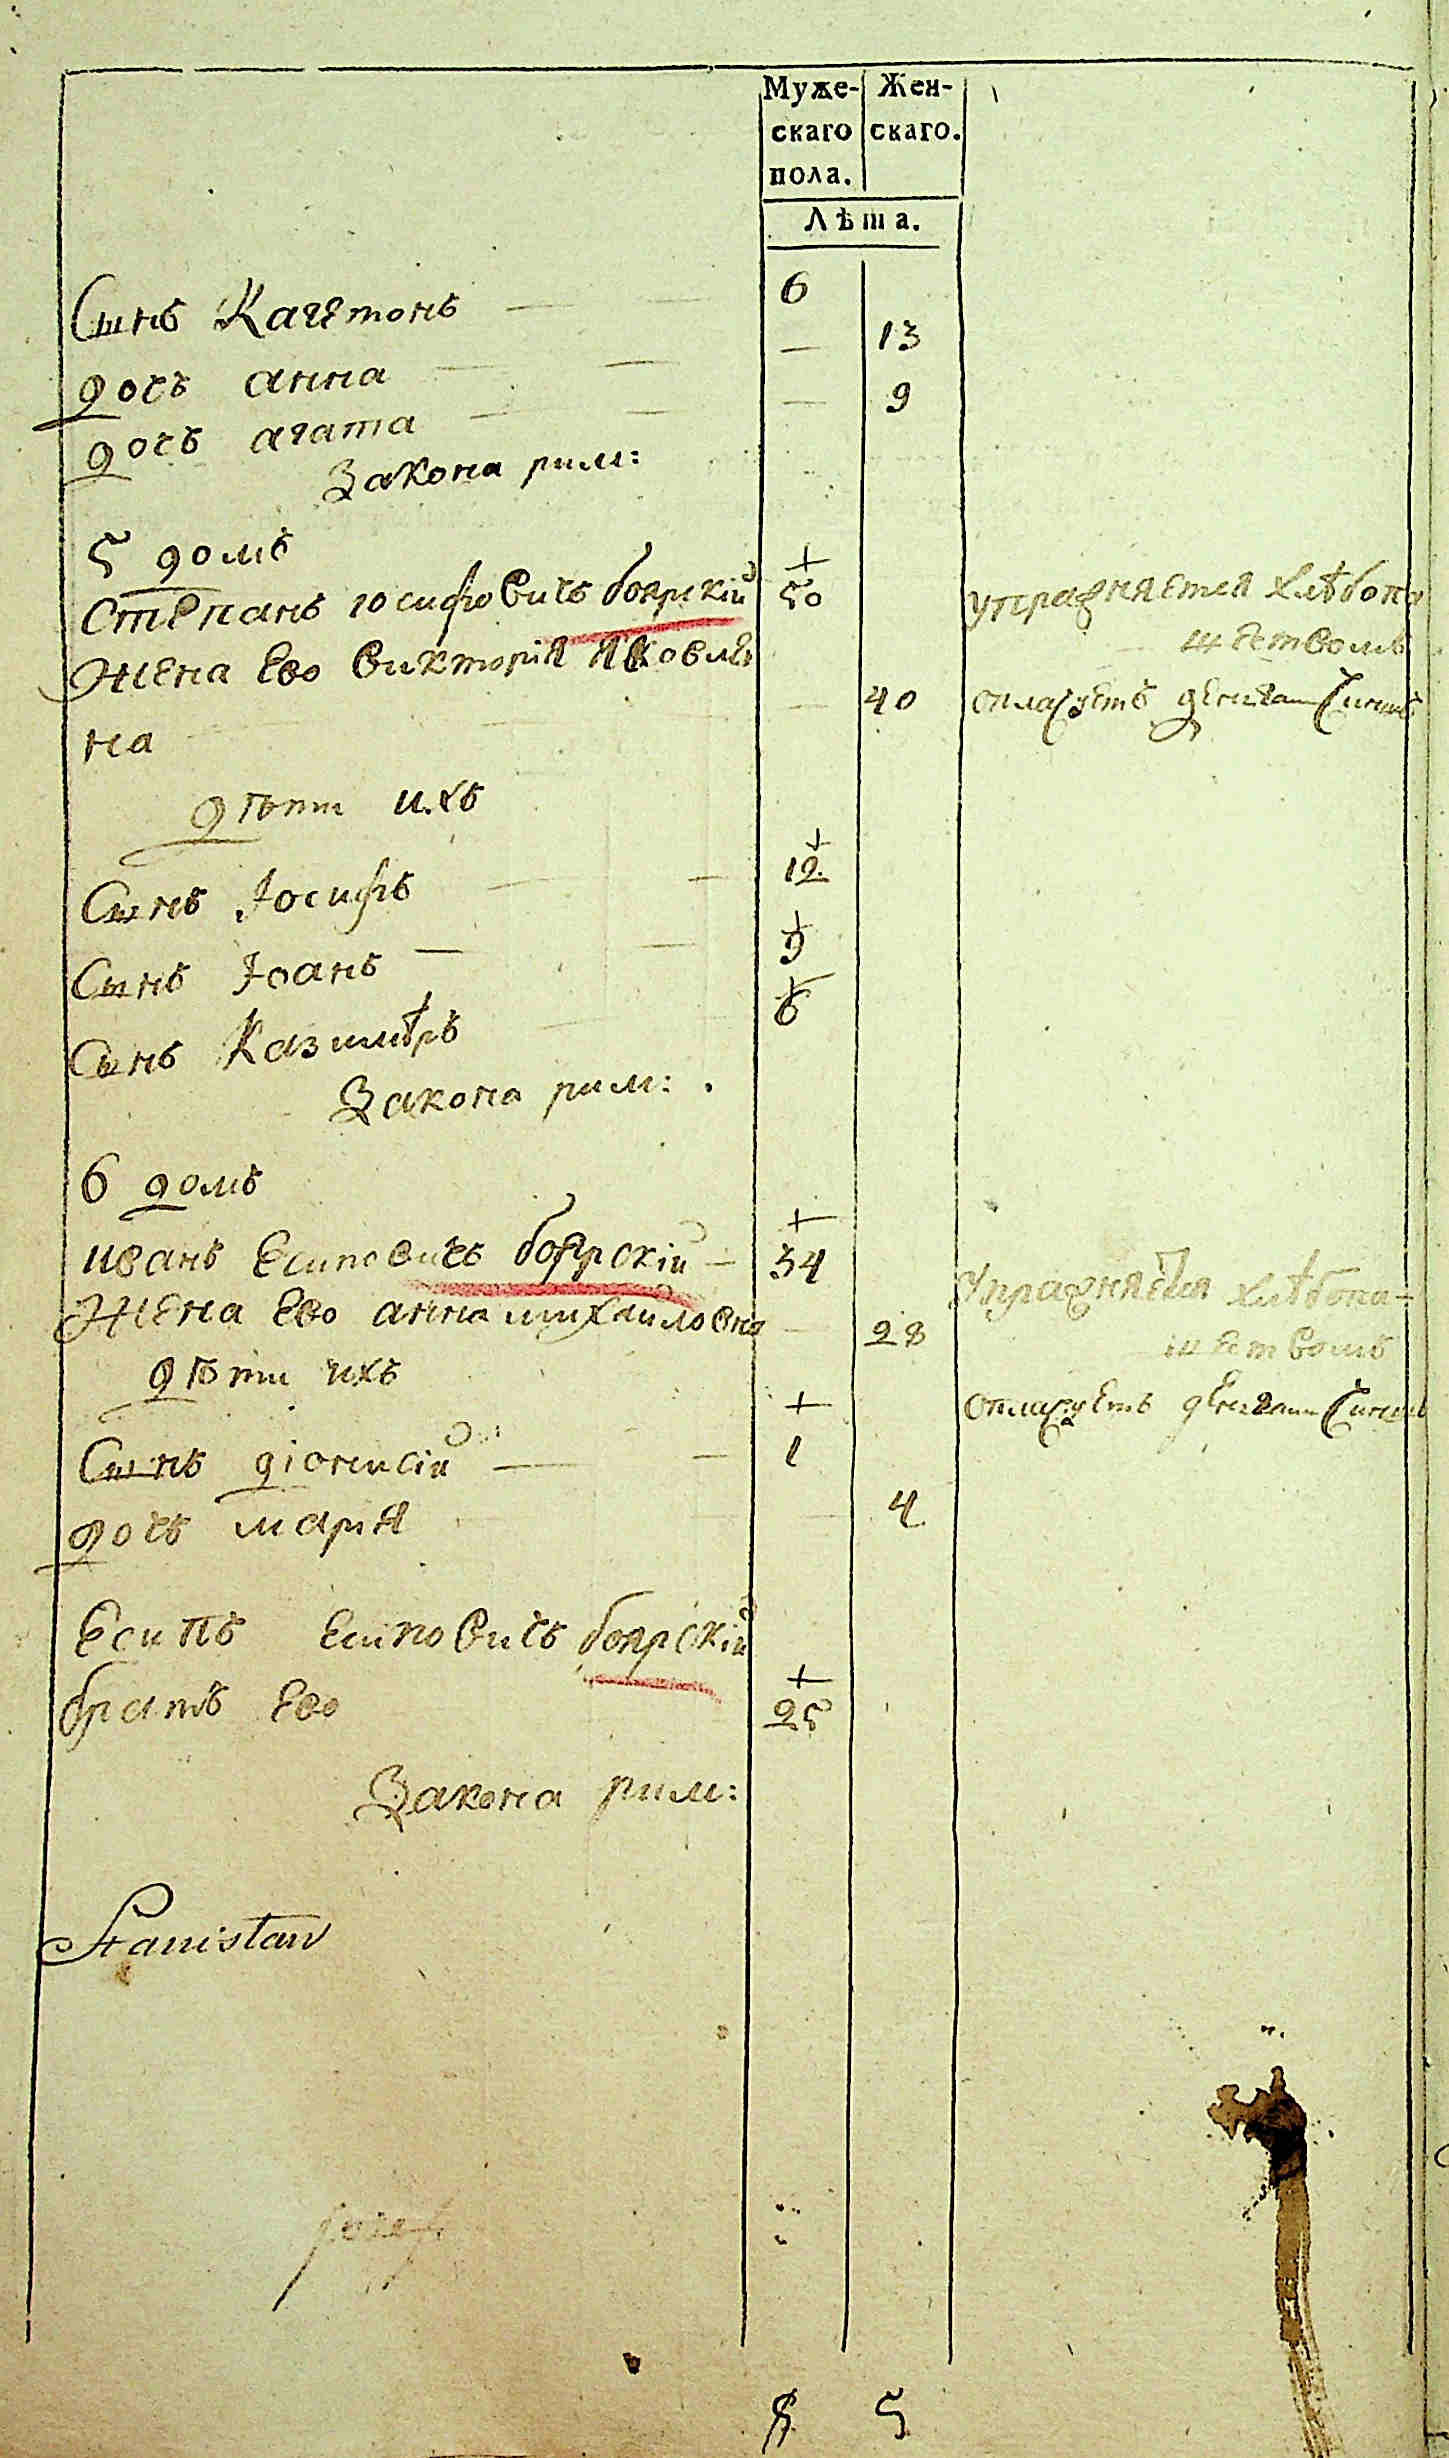 Муже- Жен-
скаго скаго.
пола.
Лѣта.
Сынъ Кагетонъ 6
дочъ анна — 13
дочъ агата — 9
Закона рим:
5 домъ
Степанъ иосифовичъ боярскій 50 упражняется хлѣбопа
шествомъ
Жена Ево викторія Яковлев
на — 40 оплачуетъ денгами Чиншъ
дѣти ихъ
Сынъ Іосифъ — 12
Сынъ Іоанъ — 9
Сынъ Казимѣръ 6
Закона рим:
6 домъ
иванъ Есиповичъ боярскій — 34 Упражняется хлѣбопа-
шествомъ
Жена Ево анна михаиловна — 28
дѣти ихъ оплачуетъ денгами Чиншъ
Сынъ діонисій — 1
дочъ марія 4
Есипъ Есиповичъ боярскій
братъ Ево 25
Закона рим:
Stanisław
8 5